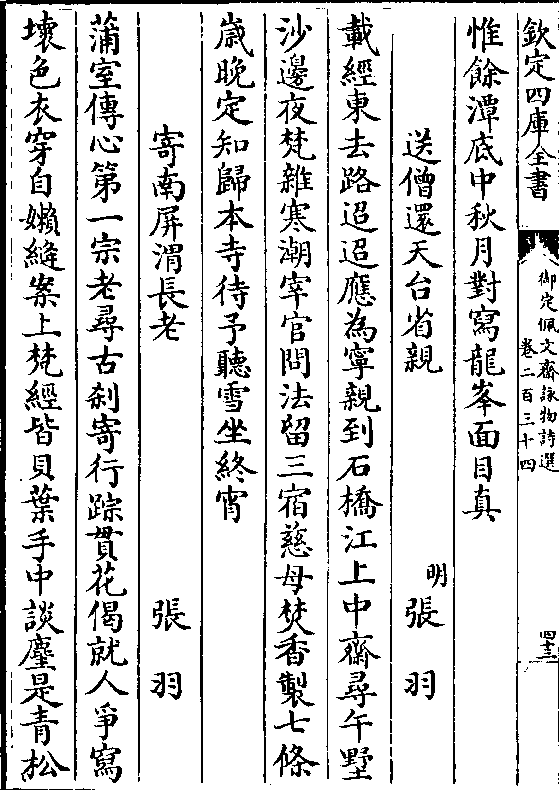 欽定四庫全書
御定佩文齋詠物詩選
卷二百三十四
四十三
惟餘潭底中秋月對寫龍峯面目真
送僧還天台省親
明張羽
載經東去路迢迢應為寧親到石橋江上中齋尋午墅
沙邊夜梵雜寒潮宰官問法留三宿慈母焚香製七條
歲晚定知歸本寺待予聽雪坐終宵
寄南屏渭長老
張羽
蒲室傳心第一宗老尋古刹寄行踪貫花偈就人爭寫
壞色衣穿自嬾縫案上梵經皆貝葉手中談麈是青松